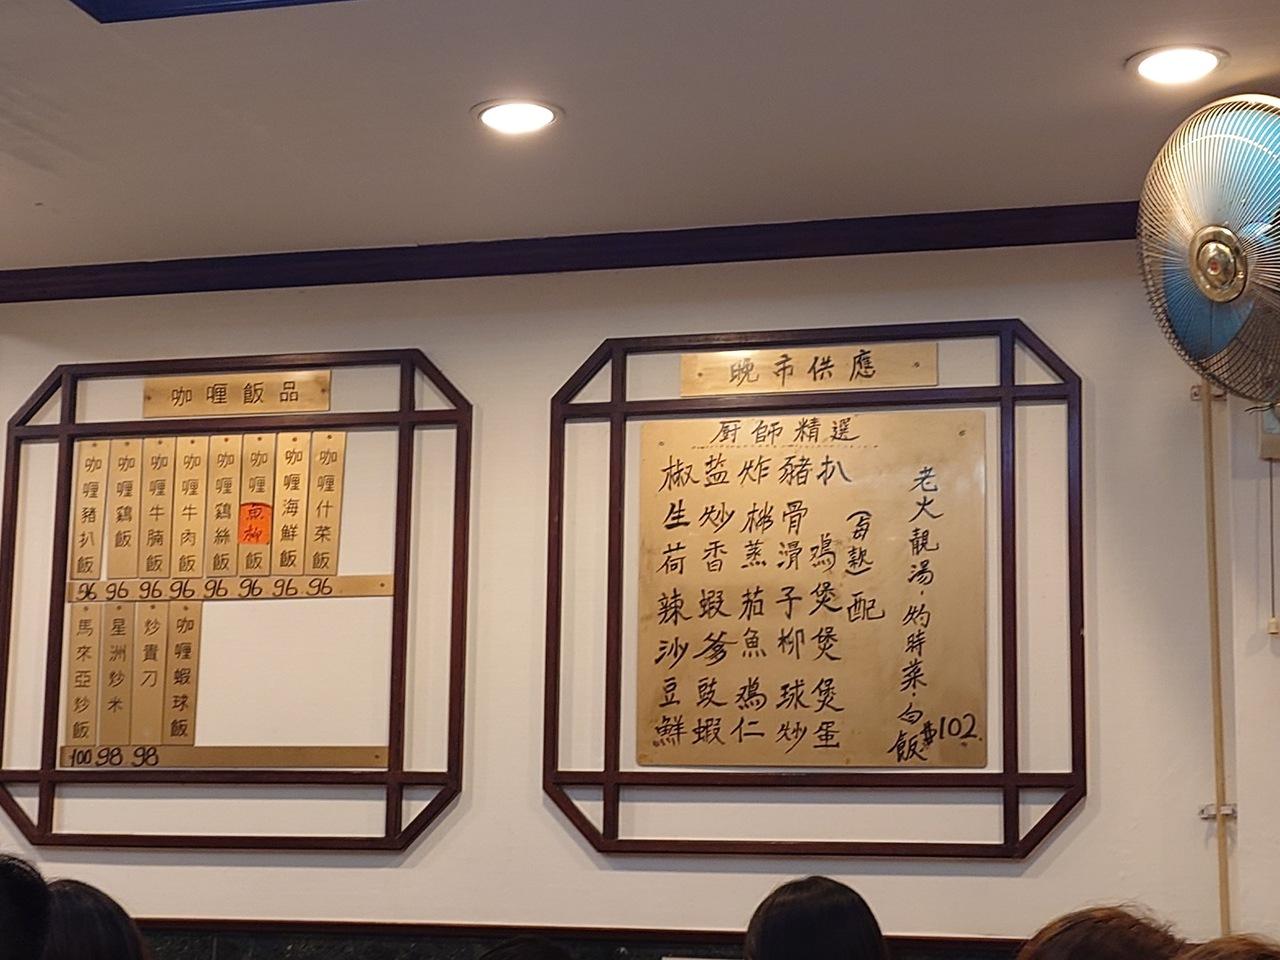 咖喱飯品
咖喱豬扒飯
咖喱鷄飯
咖喱牛腩飯
咖喱牛肉飯
咖喱鷄絲飯
咖喱魚柳飯
咖喱海鮮飯
咖喱什菜飯
96 96 96 96 96 96 96 96
馬來亞炒飯
星洲炒米
炒貴刁
咖喱蝦球飯
100 98 98
晚市供應
厨師精選
椒盐炸豬扒
生炒梯骨
荷香蒸滑鷄
辣蝦茄子煲
沙爹魚柳煲
豆豉鷄球煲
鮮蝦仁炒蛋
(每款)配
老火靚湯·灼時菜·白飯$102.